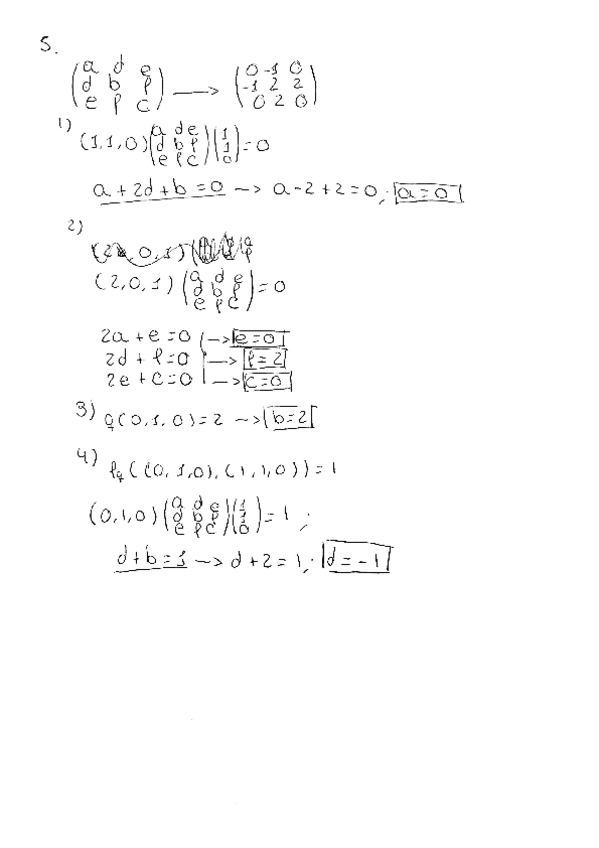 5.
(a d e
d b f
e f c) → (0 -1 0
-1 2 2
0 2 0)
1)
(1,1,0)(a d e
d b f
e f c)(1
1
0)=0
a + 2d + b = 0 → a - 2 + 2 = 0; a = 0
2)
(2,0,1)(a d e
d b f
e f c) = 0
2a + e = 0 → e = 0
2d + f = 0 → f = 2
2e + c = 0 → c = 0
3) q(0,1,0) = 2 → b = 2
4) fq((0,1,0),(1,1,0)) = 1
(0,1,0)(a d e
d b f
e f c)(1
1
0) = 1;
d + b = 1 → d + 2 = 1; d = -1